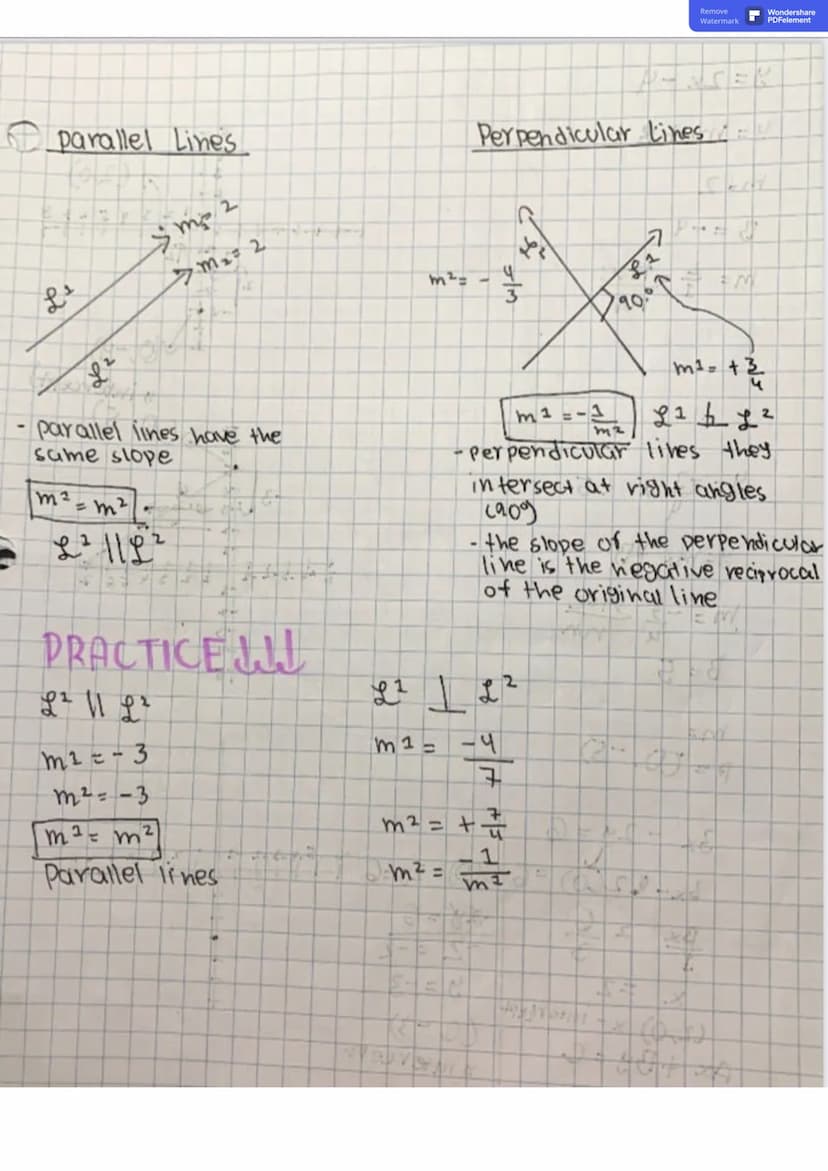 Remove
Watermark
Wondershare
PDFelement
Parallel Lines
m = 2
m2 = 2
L²
L²
- parallel lines have the
same slope
m² = m²
L² || L²
Perpendicular Lines
m² = - 4/3
L²
90°
m1 = + 3/4
m1 = - 1/m2
L1 ⊥ L2
- perpendicular lines they
intersect at right angles
(90°)
- the slope of the perpendicular
line is the negative reciprocal
of the original line
PRACTICE ↓↓↓
L² || L²
m1 = - 3
m² = -3
m1 = m²
Parallel lines
L1 ⊥ L2
m1 = -4/7
m2 = + 7/4
m2 = -1/m2